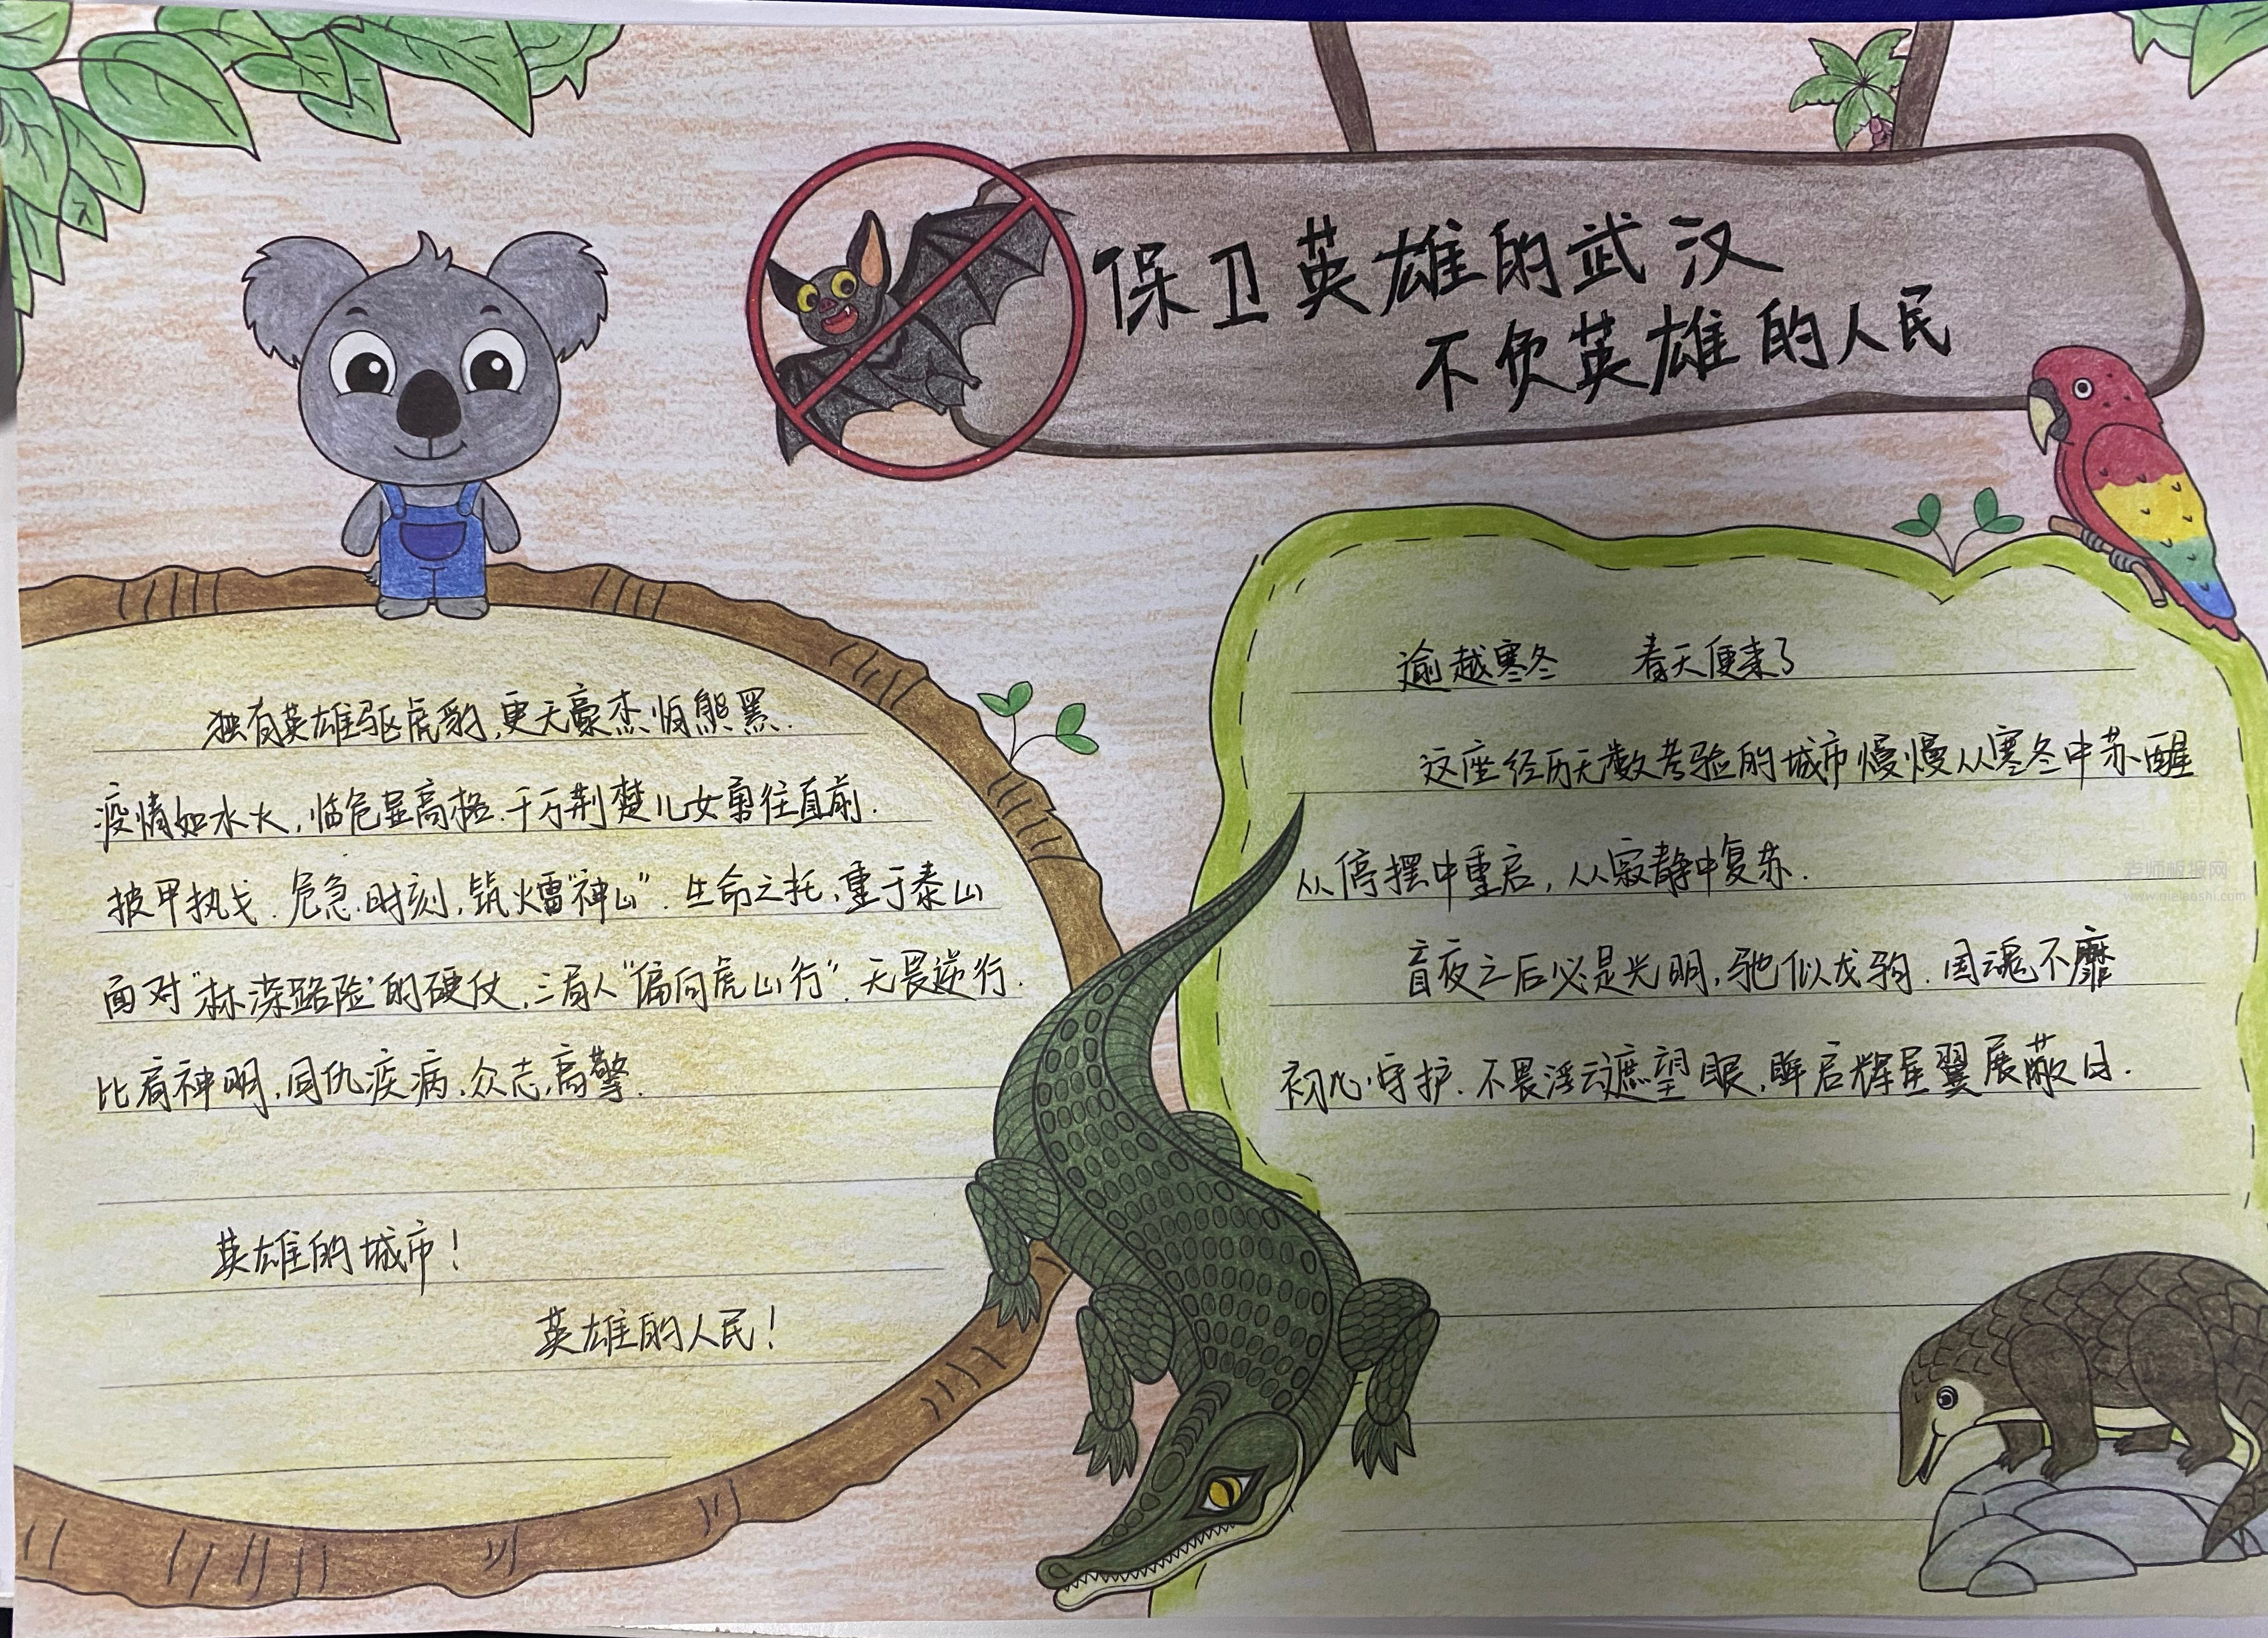 保卫英雄的武汉
不负英雄的人民
独有英雄驱虎豹,更无豪杰怕熊罴.
疫情如水火,临危显高格.千万荆楚儿女勇往直前.
披甲执戈.危急时刻,筑火雷"神山".生命之托,重于泰山
面对"林深路险"的硬仗,三有人"偏向虎山行".无畏逆行.
比肩神明,同仇疾病.众志高擎.
英雄的城市!
英雄的人民!
逾越寒冬 春天便来了
这座经历无数考验的城市慢慢从寒冬中苏醒
从停摆中重启,从寂静中复苏.
盲夜之后必是光明,驰似龙驹.国魂不靡
初心守护.不畏浮云遮望眼,眸启辉星翼展蔽日.
老师版报网